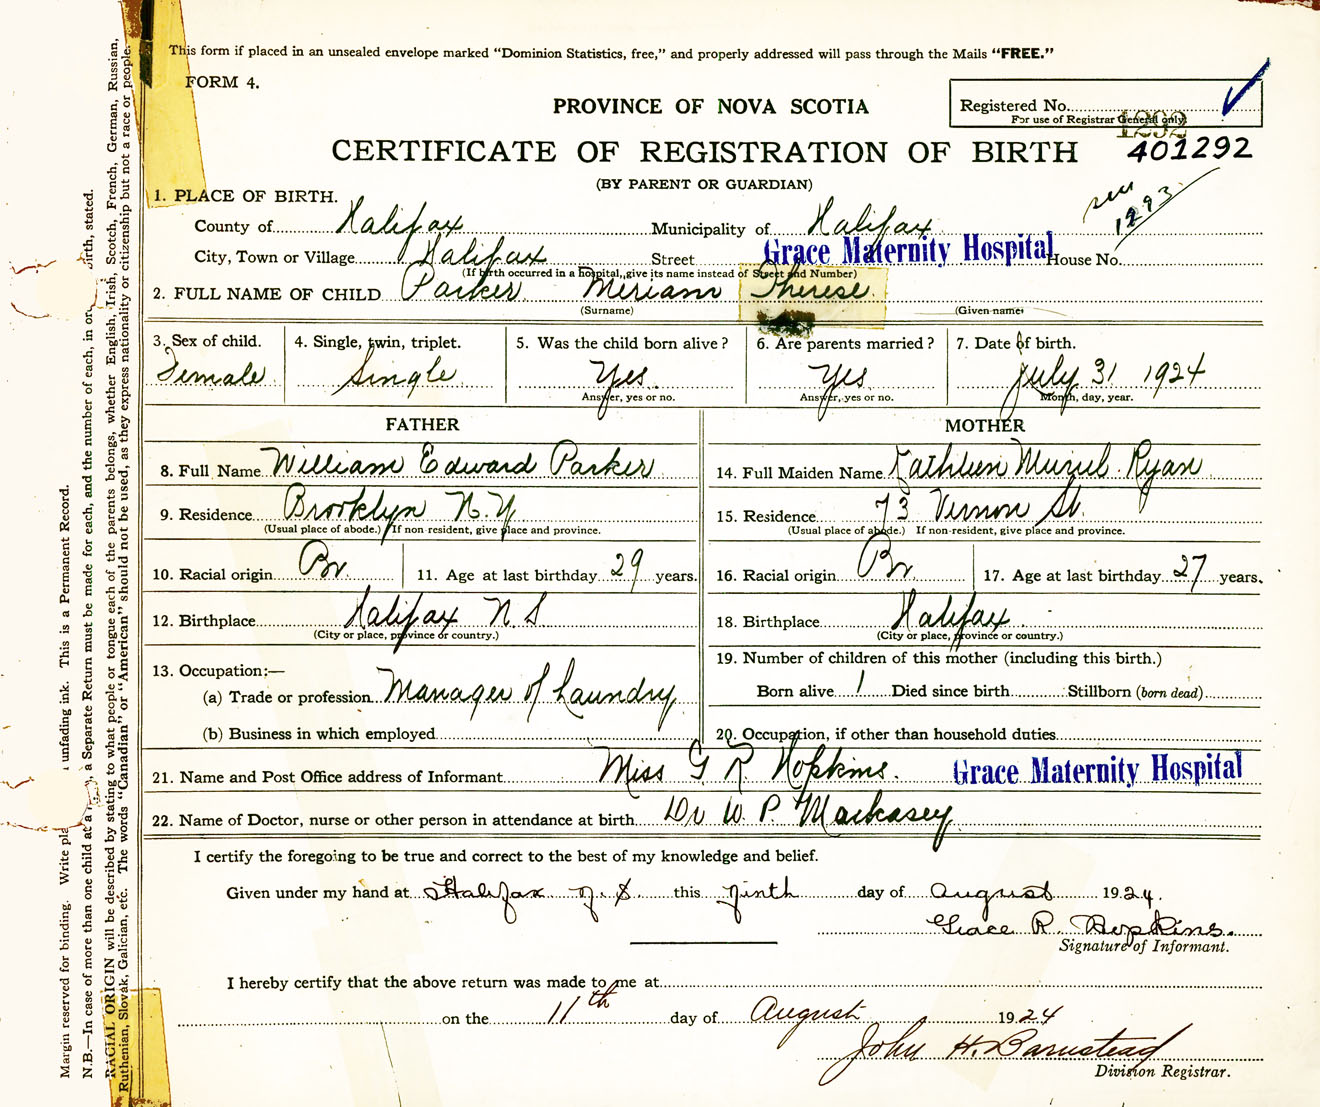 This form if placed in an unsealed envelope marked "Dominion Statistics, free," and properly addressed will pass through the Mails "FREE."
FORM 4.
PROVINCE OF NOVA SCOTIA
Registered No.
For use of Registrar General only
1292
401292
CERTIFICATE OF REGISTRATION OF BIRTH
(BY PARENT OR GUARDIAN)
see 1293
1. PLACE OF BIRTH.
County of Halifax Municipality of Halifax
City, Town or Village Halifax Street Grace Maternity Hospital House No.
(If birth occurred in a hospital, give its name instead of Street and Number)
2. FULL NAME OF CHILD Parker Meriam Therese
(Surname) (Given names)
3. Sex of child. Female
4. Single, twin, triplet. Single
5. Was the child born alive? Yes
Answer, yes or no.
6. Are parents married? Yes
Answer, yes or no.
7. Date of birth. July 31 1924
Month, day, year.
FATHER
8. Full Name William Edward Parker
9. Residence Brooklyn N.Y
(Usual place of abode.) If non-resident, give place and province.
10. Racial origin Br. 11. Age at last birthday 29 years.
12. Birthplace Halifax N.S
(City or place, province or country.)
13. Occupation:—
(a) Trade or profession Manager of Laundry
(b) Business in which employed
MOTHER
14. Full Maiden Name Kathleen Muriel Ryan
15. Residence 73 Vernon St.
(Usual place of abode.) If non-resident, give place and province.
16. Racial origin Br. 17. Age at last birthday 27 years.
18. Birthplace Halifax
(City or place, province or country.)
19. Number of children of this mother (including this birth.)
Born alive 1 Died since birth Stillborn (born dead)
20. Occupation, if other than household duties
21. Name and Post Office address of Informant Miss G R Hopkins. Grace Maternity Hospital
22. Name of Doctor, nurse or other person in attendance at birth Dr W. P. Mackasey
I certify the foregoing to be true and correct to the best of my knowledge and belief.
Given under my hand at Halifax N.S. this Ninth day of August 1924.
Grace R. Hopkins.
Signature of Informant.
I hereby certify that the above return was made to me at
on the 11th day of August 1924
John H. Barnstead
Division Registrar.
Margin reserved for binding. Write unfading ink. This is a Permanent Record.
N.B.—In case of more than one child at a a Separate Return must be made for each, and the number of each, in birth, stated.
RACIAL ORIGIN will be described by stating to what people or tongue each of the parents belongs, whether English, Irish, Scotch, French, German, Russian,
Ruthenian, Slovak, Galician, etc. The words "Canadian" or "American" should not be used, as they express nationality or citizenship but not a race or people.